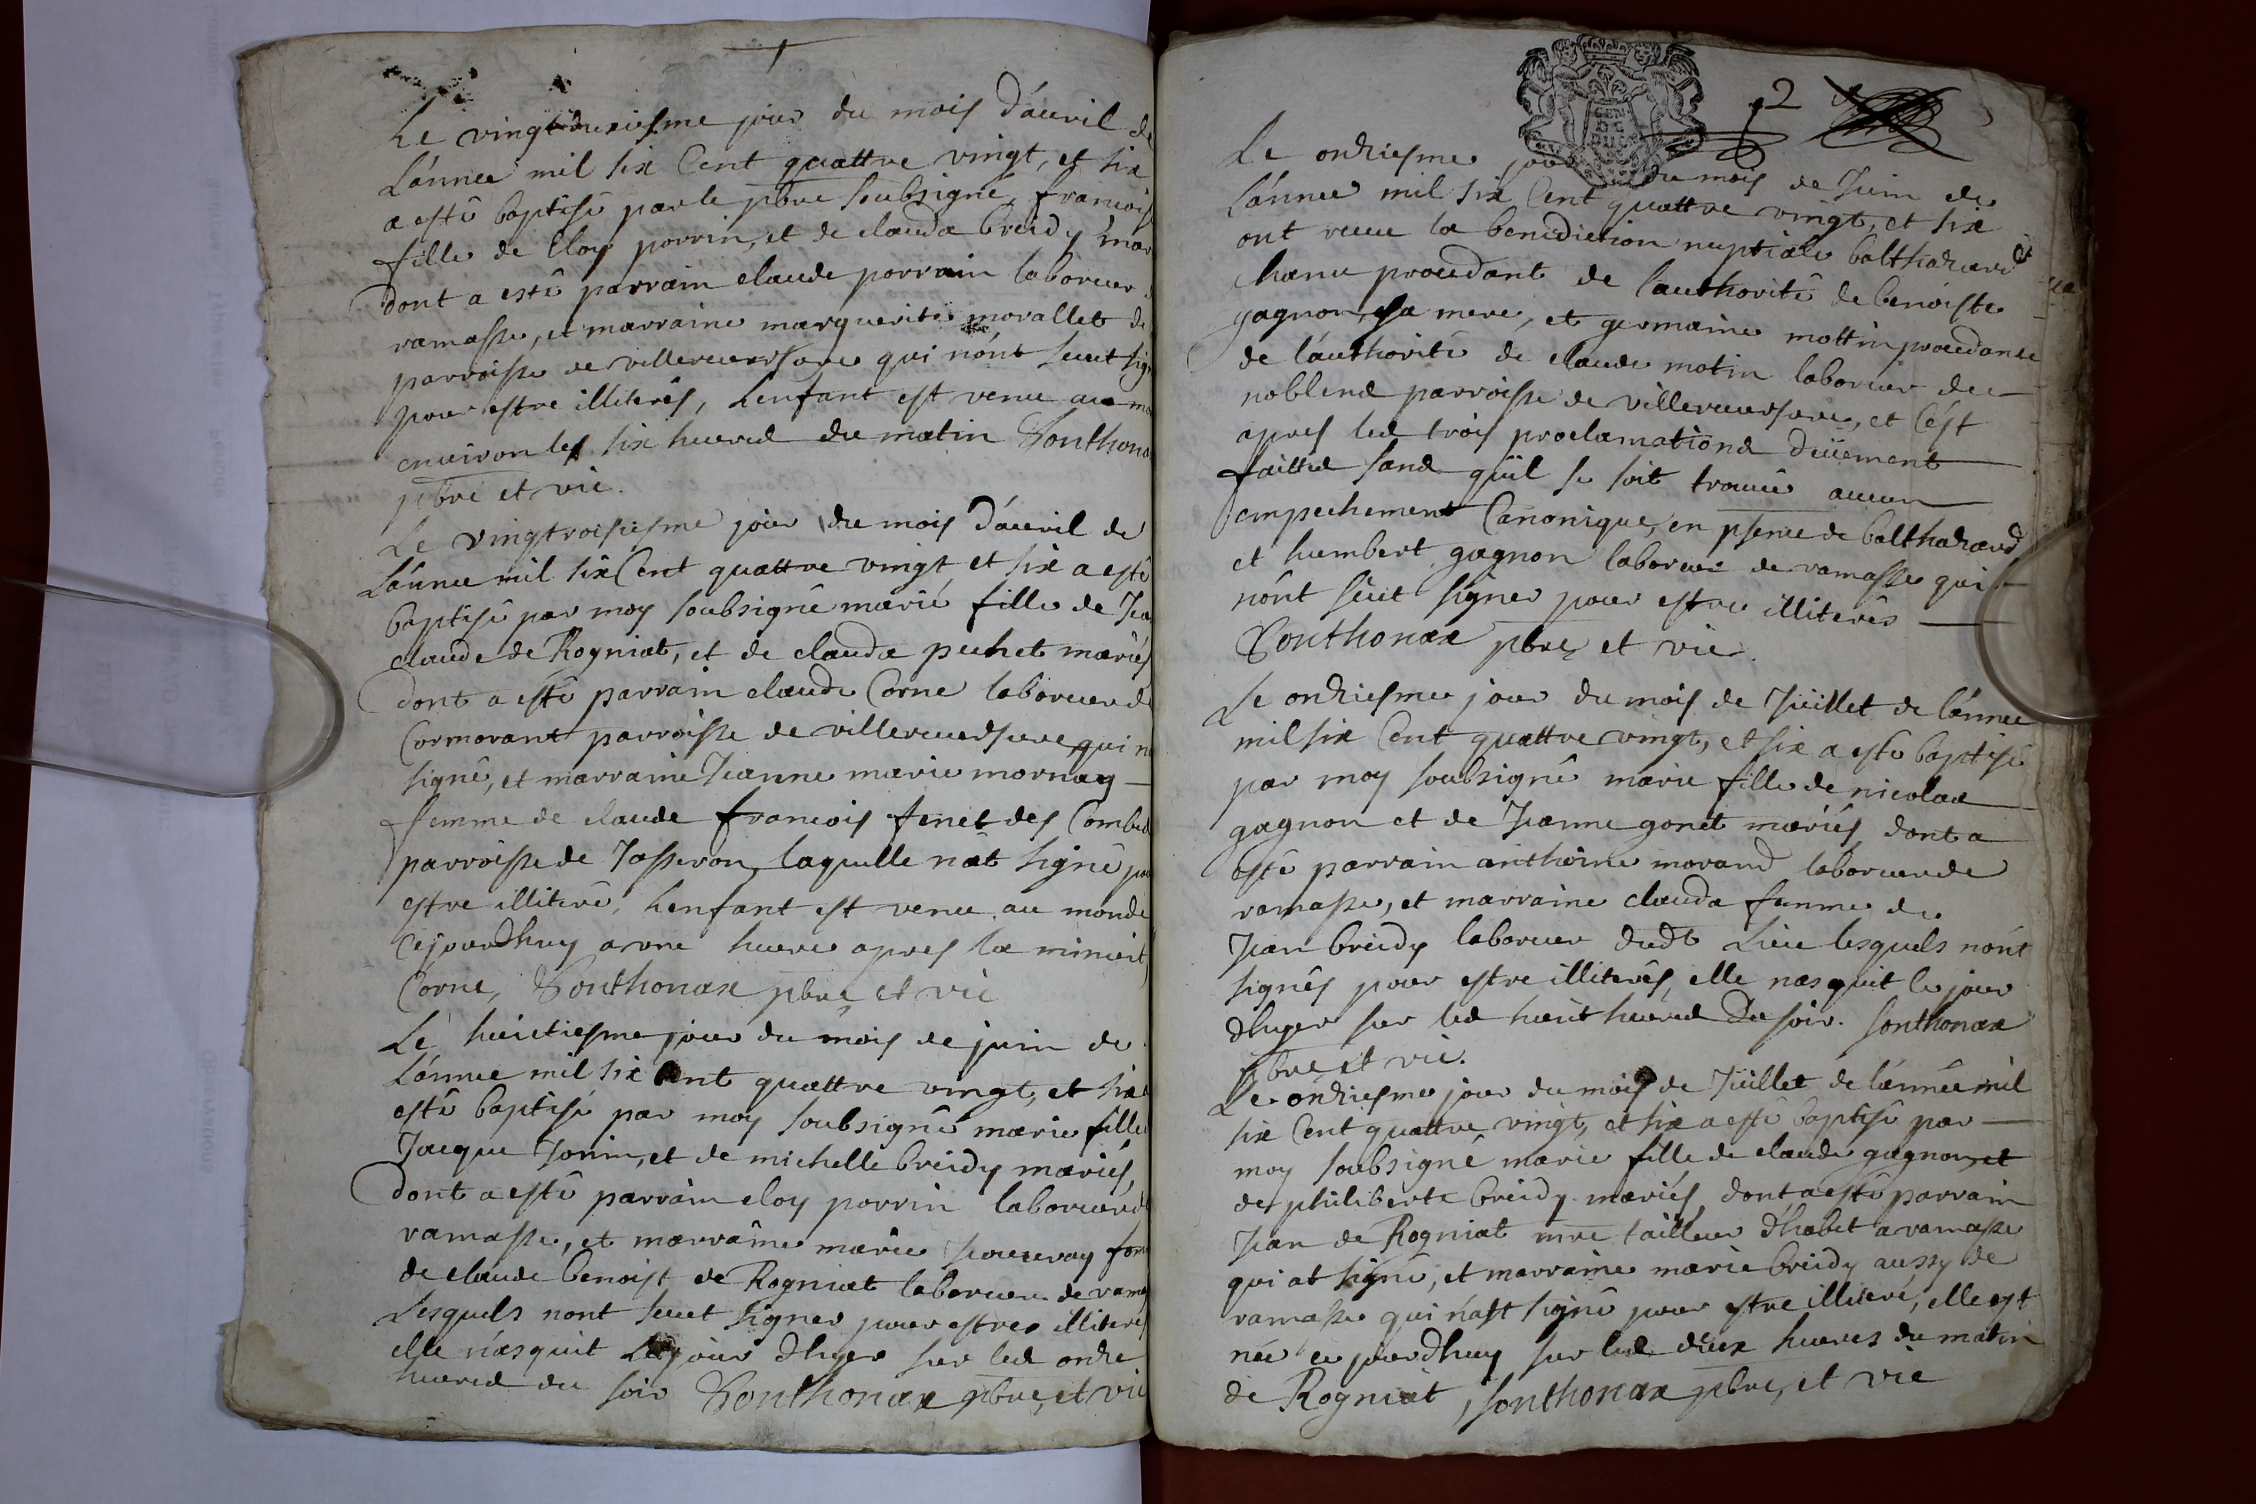 Le vingtduxiesme jour du mois d'auril de
L'annee mil six Cent quattre vingt, et six
a estê baptisê par le pbre soubsigné francoise
fille de Eloy porrin, et de clauda breidy mar
dont a estê parrain claude porrain laboreur
ramasse, et marraine marguerite morallet de
parroisse de villereuersure qui n'ônt sceut sig
pour estre illiterês, L'enfant est venu au mo
enuiron les six heures du matin Sonthona
pbre et vic.
Le vingtroisiesme jour du mois d'auril de
L'annee mil six Cent quattre vingt et six a estê
baptisê par moy soubsignê marie fille de Jea
claude de Rogniat, et de clauda puhet mariés
dont a estê parrain claude Corne laboreur de
Cormorant parroisse de villereuersure qui
signê, et marraine Jeanne marie mornay
femme de claude francois fenet des Combes
parroisse de Jasseron, laquelle n'at signê po
estre illiterê, L'enfant est venu au monde
Cejourdhuy a vne heure apres la minuit
Corne, Sonthonax pbre et vic
Le huictiesme jour du mois de juin de
L'annee mil six Cent quattre vingt, et six
estê baptisê par moy soubsignê marie fille
Jacque Jorin, et de michelle breidy mariés,
dont a estê parrain eloy porrin laboreur d
ramasse, et marraîne marie fem
de claude benoist de Rogniat laboreur de rama
Lesquels nont sceut signer pour estres illiteres
elle n'asquit Le jour dhyer sur les onze
heures du soir Sonthonax pbre, et vic
2
Le onziesme jour du mois de Juin de
L'annee mil six Cent quattre vingt, et six
ont receu la benediction nuptiale balthazard
Chanu procedant de l'authoritê de benoiste
gagnon, sa mere, et germaine mottin procedante
de l'authoritê de claude motin laboreur de
noblens parroisse de villereuersure, et C'est
apres les trois proclamations deüement
faittes sans qüil se soit trouuê aucun
empechement Canonique, en psence de balthazard
et humbert gagnon laboreur de ramasse qui
nônt sceut signer pour estre illiterês
Sonthonax pbre, et vic.
Le onziesme jour du mois de Jüillet de l'annee
mil six Cent quattre vingt, et six a estê baptisê
par moy soubsignê marie fille de nicolas
gagnon et de Jeanne gonet mariés dont a
estê parrain anthoine morand laboreur de
ramasse, et marraine clauda femme de
Jean breidy laboreur dudt Lieu lesquels n'ont
signês pour estre illiterês, elle nasquit le jour
dhyer sur les huit heures du soir. Sonthonax
pbre et vic.
Le onziesme jour du mois de Jüillet de l'annêe mil
six Cent quattre vingt, et six a estê baptisê par
moy soubsigné marie fille de claude gagnon et
de philiberte breidy mariés, dont a estê parrain
Jean de Rogniat mre tailleur d'habit a ramasse
qui at signé, et marraine marie breidy aussy de
ramasse qui n'ast signê pour estre illiteré, elle est
née ce jourdhuy sur les deux heures du matin
de Rogniat, Sonthonax pbre, et vic